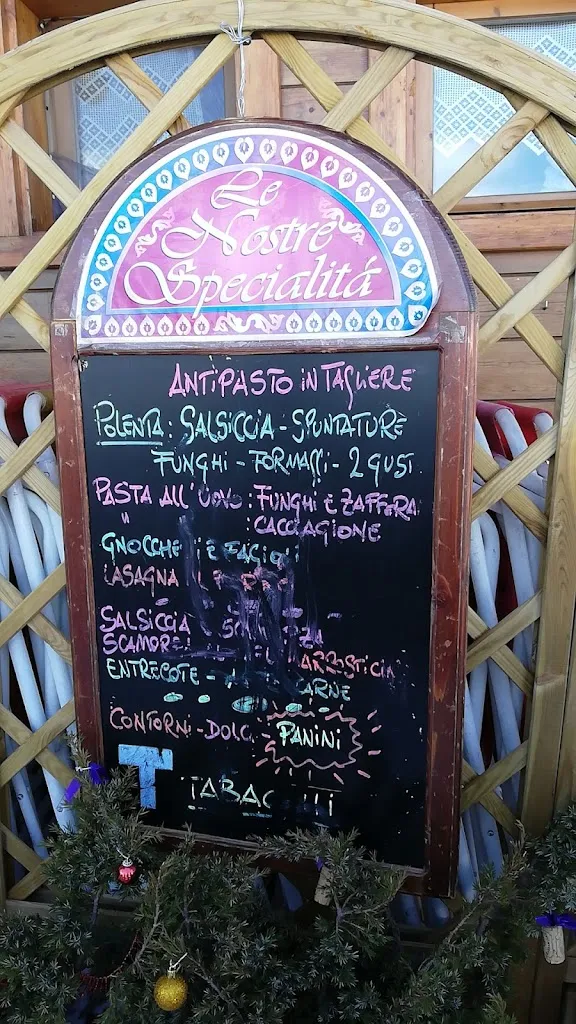 Le
Nostre
Specialitá
ANTIPASTO IN TAGLIERE
POLENTA: SALSICCIA - SPUNTATURE
FUNGHI - FORMAGGI - 2 GUSTI
PASTA ALL'UOVO: FUNGHI E ZAFFERA
" : CACCIAGIONE
GNOCCHE E FAGIOLI
LASAGNA
SALSICCIA
ARROSTICINI
ENTRECOTE - CARNE
CONTORNI - DOLCI - PANINI
T TABACCHI